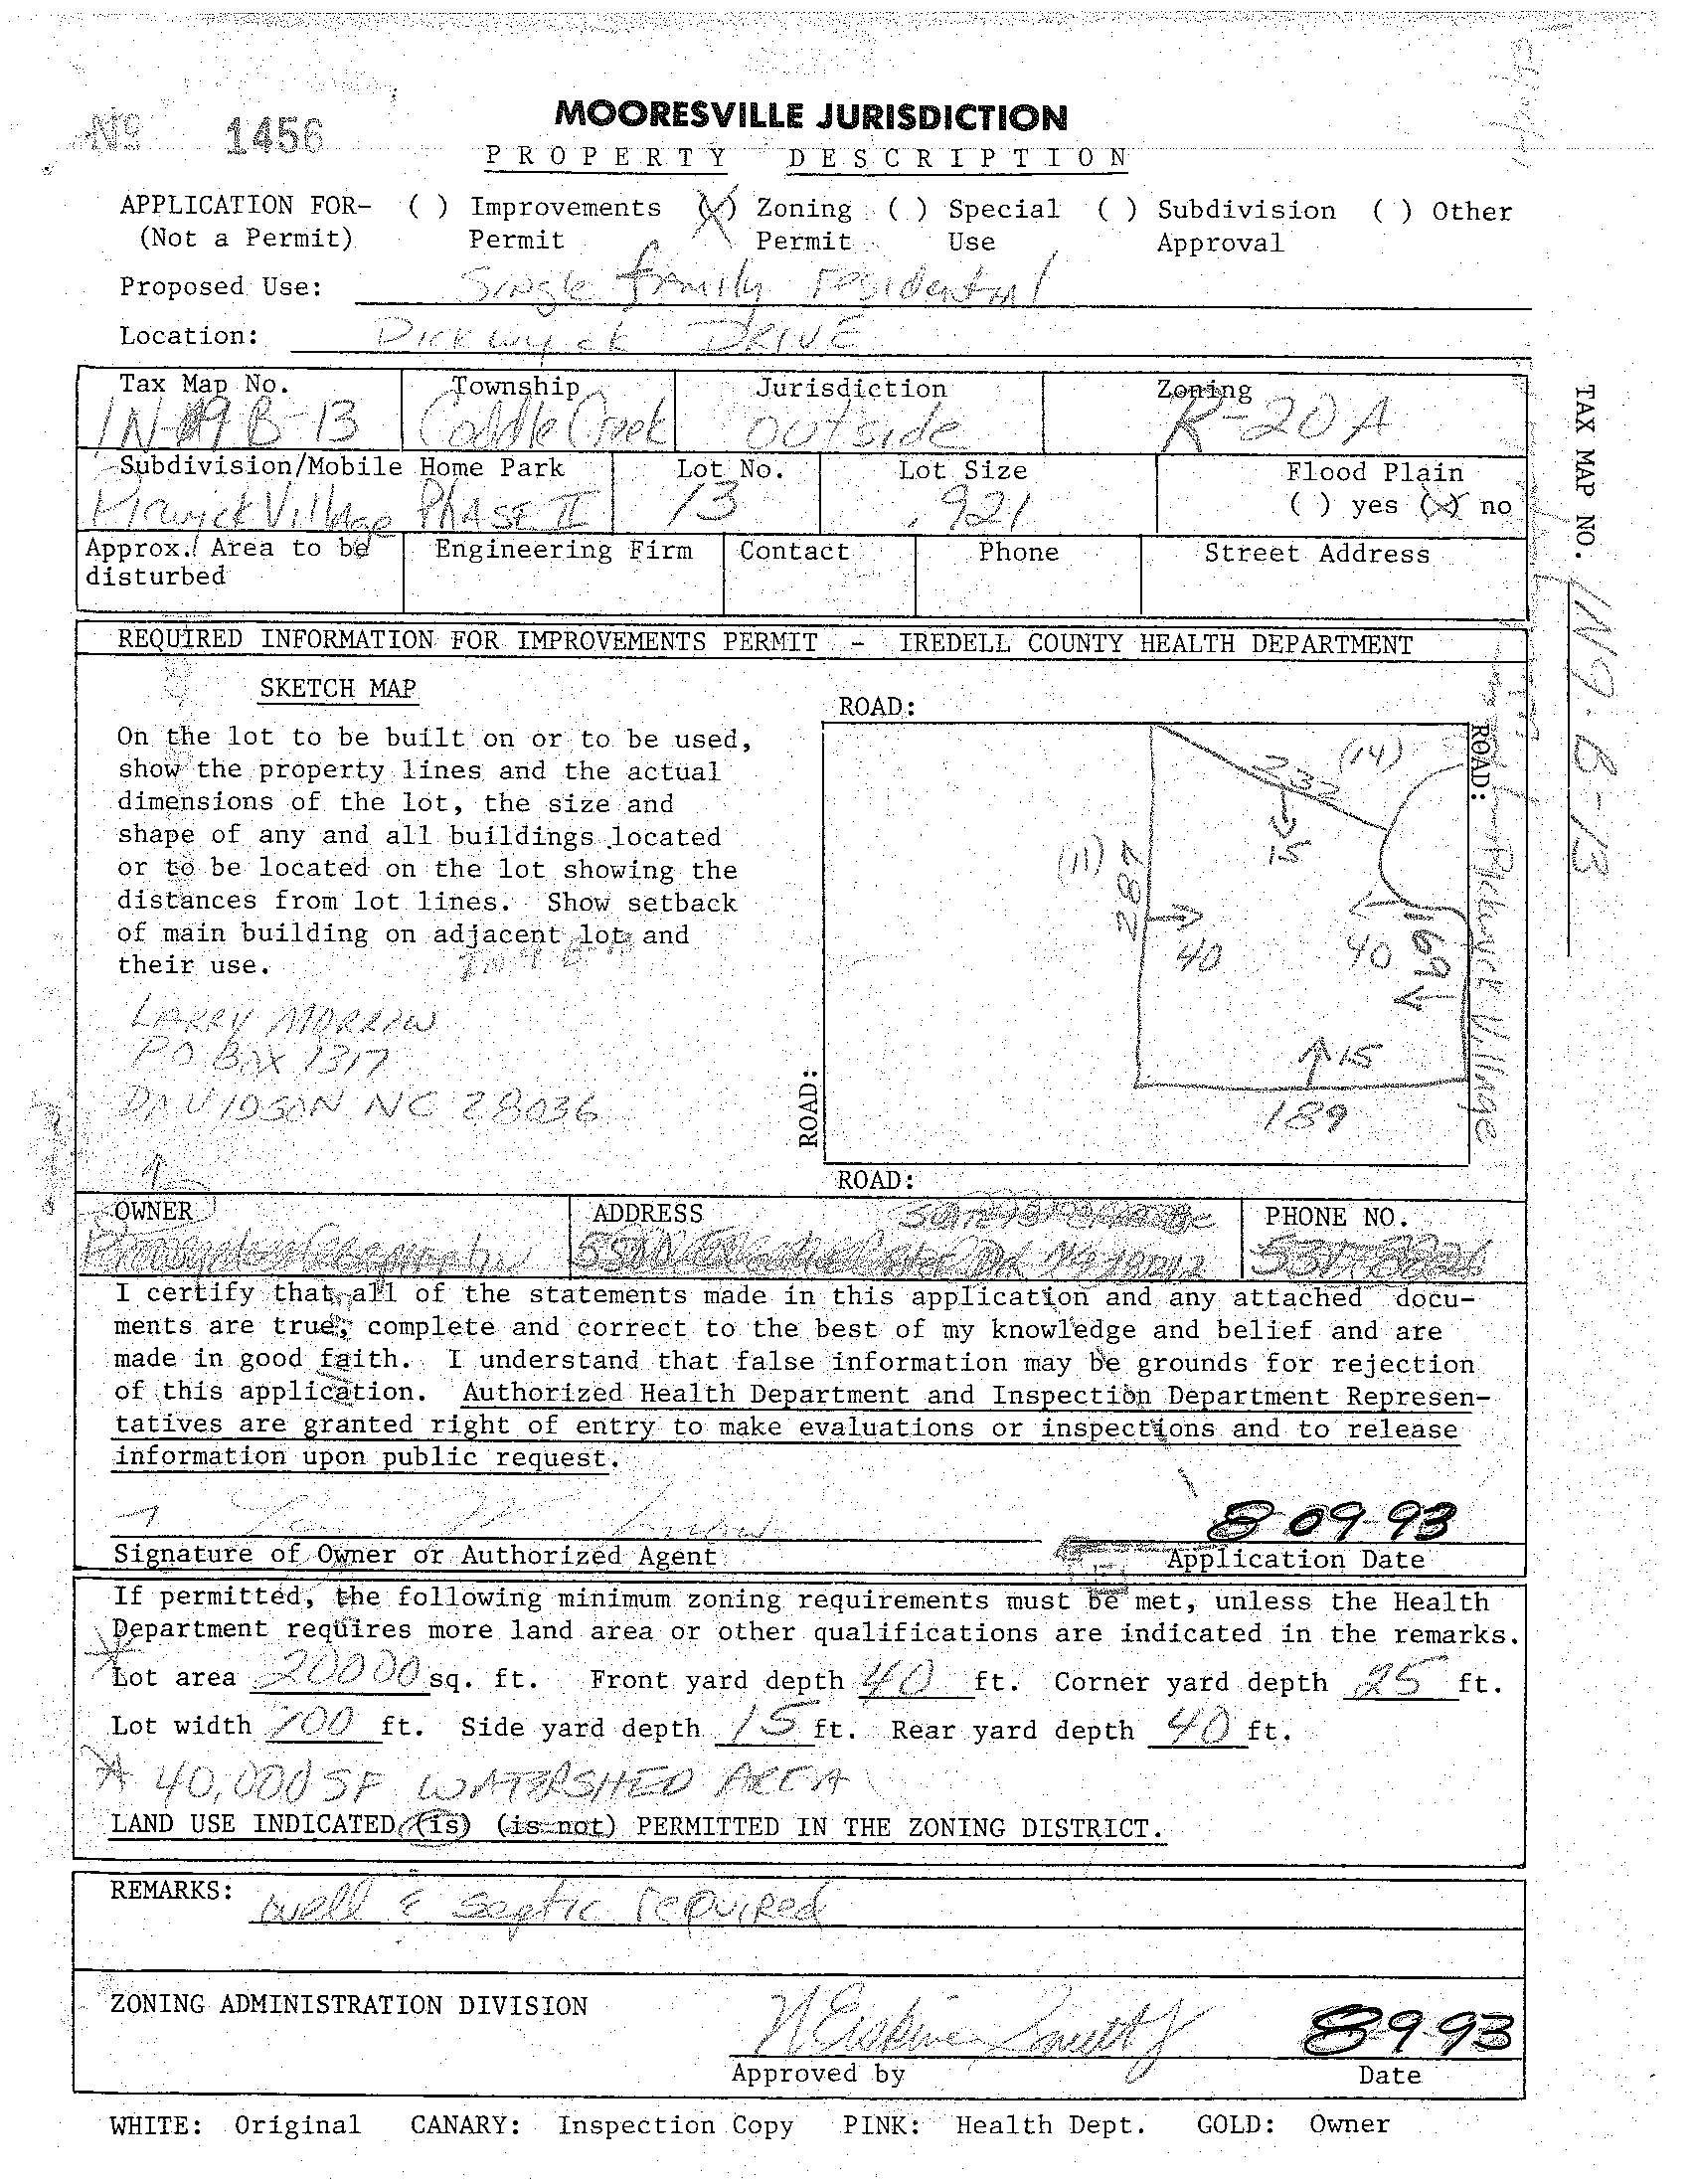 Nº 1456
MOORESVILLE JURISDICTION
PROPERTY DESCRIPTION
APPLICATION FOR- ( ) Improvements (X) Zoning ( ) Special ( ) Subdivision ( ) Other
(Not a Permit) Permit Permit Use Approval
Proposed Use: Single family residential
Location: Pickwyck DRIVE
Tax Map No. Township Jurisdiction Zoning
1N-9B-13 Coddle Creek outside R-20A
Subdivision/Mobile Home Park Lot No. Lot Size Flood Plain
Pickwick Village PHASE II 13 .921 ( ) yes (X) no
Approx. Area to be Engineering Firm Contact Phone Street Address
disturbed
TAX MAP NO. 1N9-B-13
REQUIRED INFORMATION FOR IMPROVEMENTS PERMIT - IREDELL COUNTY HEALTH DEPARTMENT
SKETCH MAP
On the lot to be built on or to be used,
show the property lines and the actual
dimensions of the lot, the size and
shape of any and all buildings located
or to be located on the lot showing the
distances from lot lines. Show setback
of main building on adjacent lots and
their use.
LARRY MORROW
PO BOX 1317
DAVIDSON NC 28036
ROAD:
ROAD: Pickwick Village
(14)
232
15
(11)
287
40
40
169
15
189
ROAD:
ROAD:
OWNER ADDRESS PHONE NO.
I certify that all of the statements made in this application and any attached docu-
ments are true, complete and correct to the best of my knowledge and belief and are
made in good faith. I understand that false information may be grounds for rejection
of this application. Authorized Health Department and Inspection Department Represen-
tatives are granted right of entry to make evaluations or inspections and to release
information upon public request.
8-09-93
Signature of Owner or Authorized Agent Application Date
If permitted, the following minimum zoning requirements must be met, unless the Health
Department requires more land area or other qualifications are indicated in the remarks.
* Lot area 20000 sq. ft. Front yard depth 40 ft. Corner yard depth 25 ft.
Lot width 100 ft. Side yard depth 15 ft. Rear yard depth 40 ft.
* 40,000 SF WATERSHED AREA
LAND USE INDICATED (is) (is not) PERMITTED IN THE ZONING DISTRICT.
REMARKS: well & septic required
ZONING ADMINISTRATION DIVISION
8-9-93
Approved by Date
WHITE: Original CANARY: Inspection Copy PINK: Health Dept. GOLD: Owner